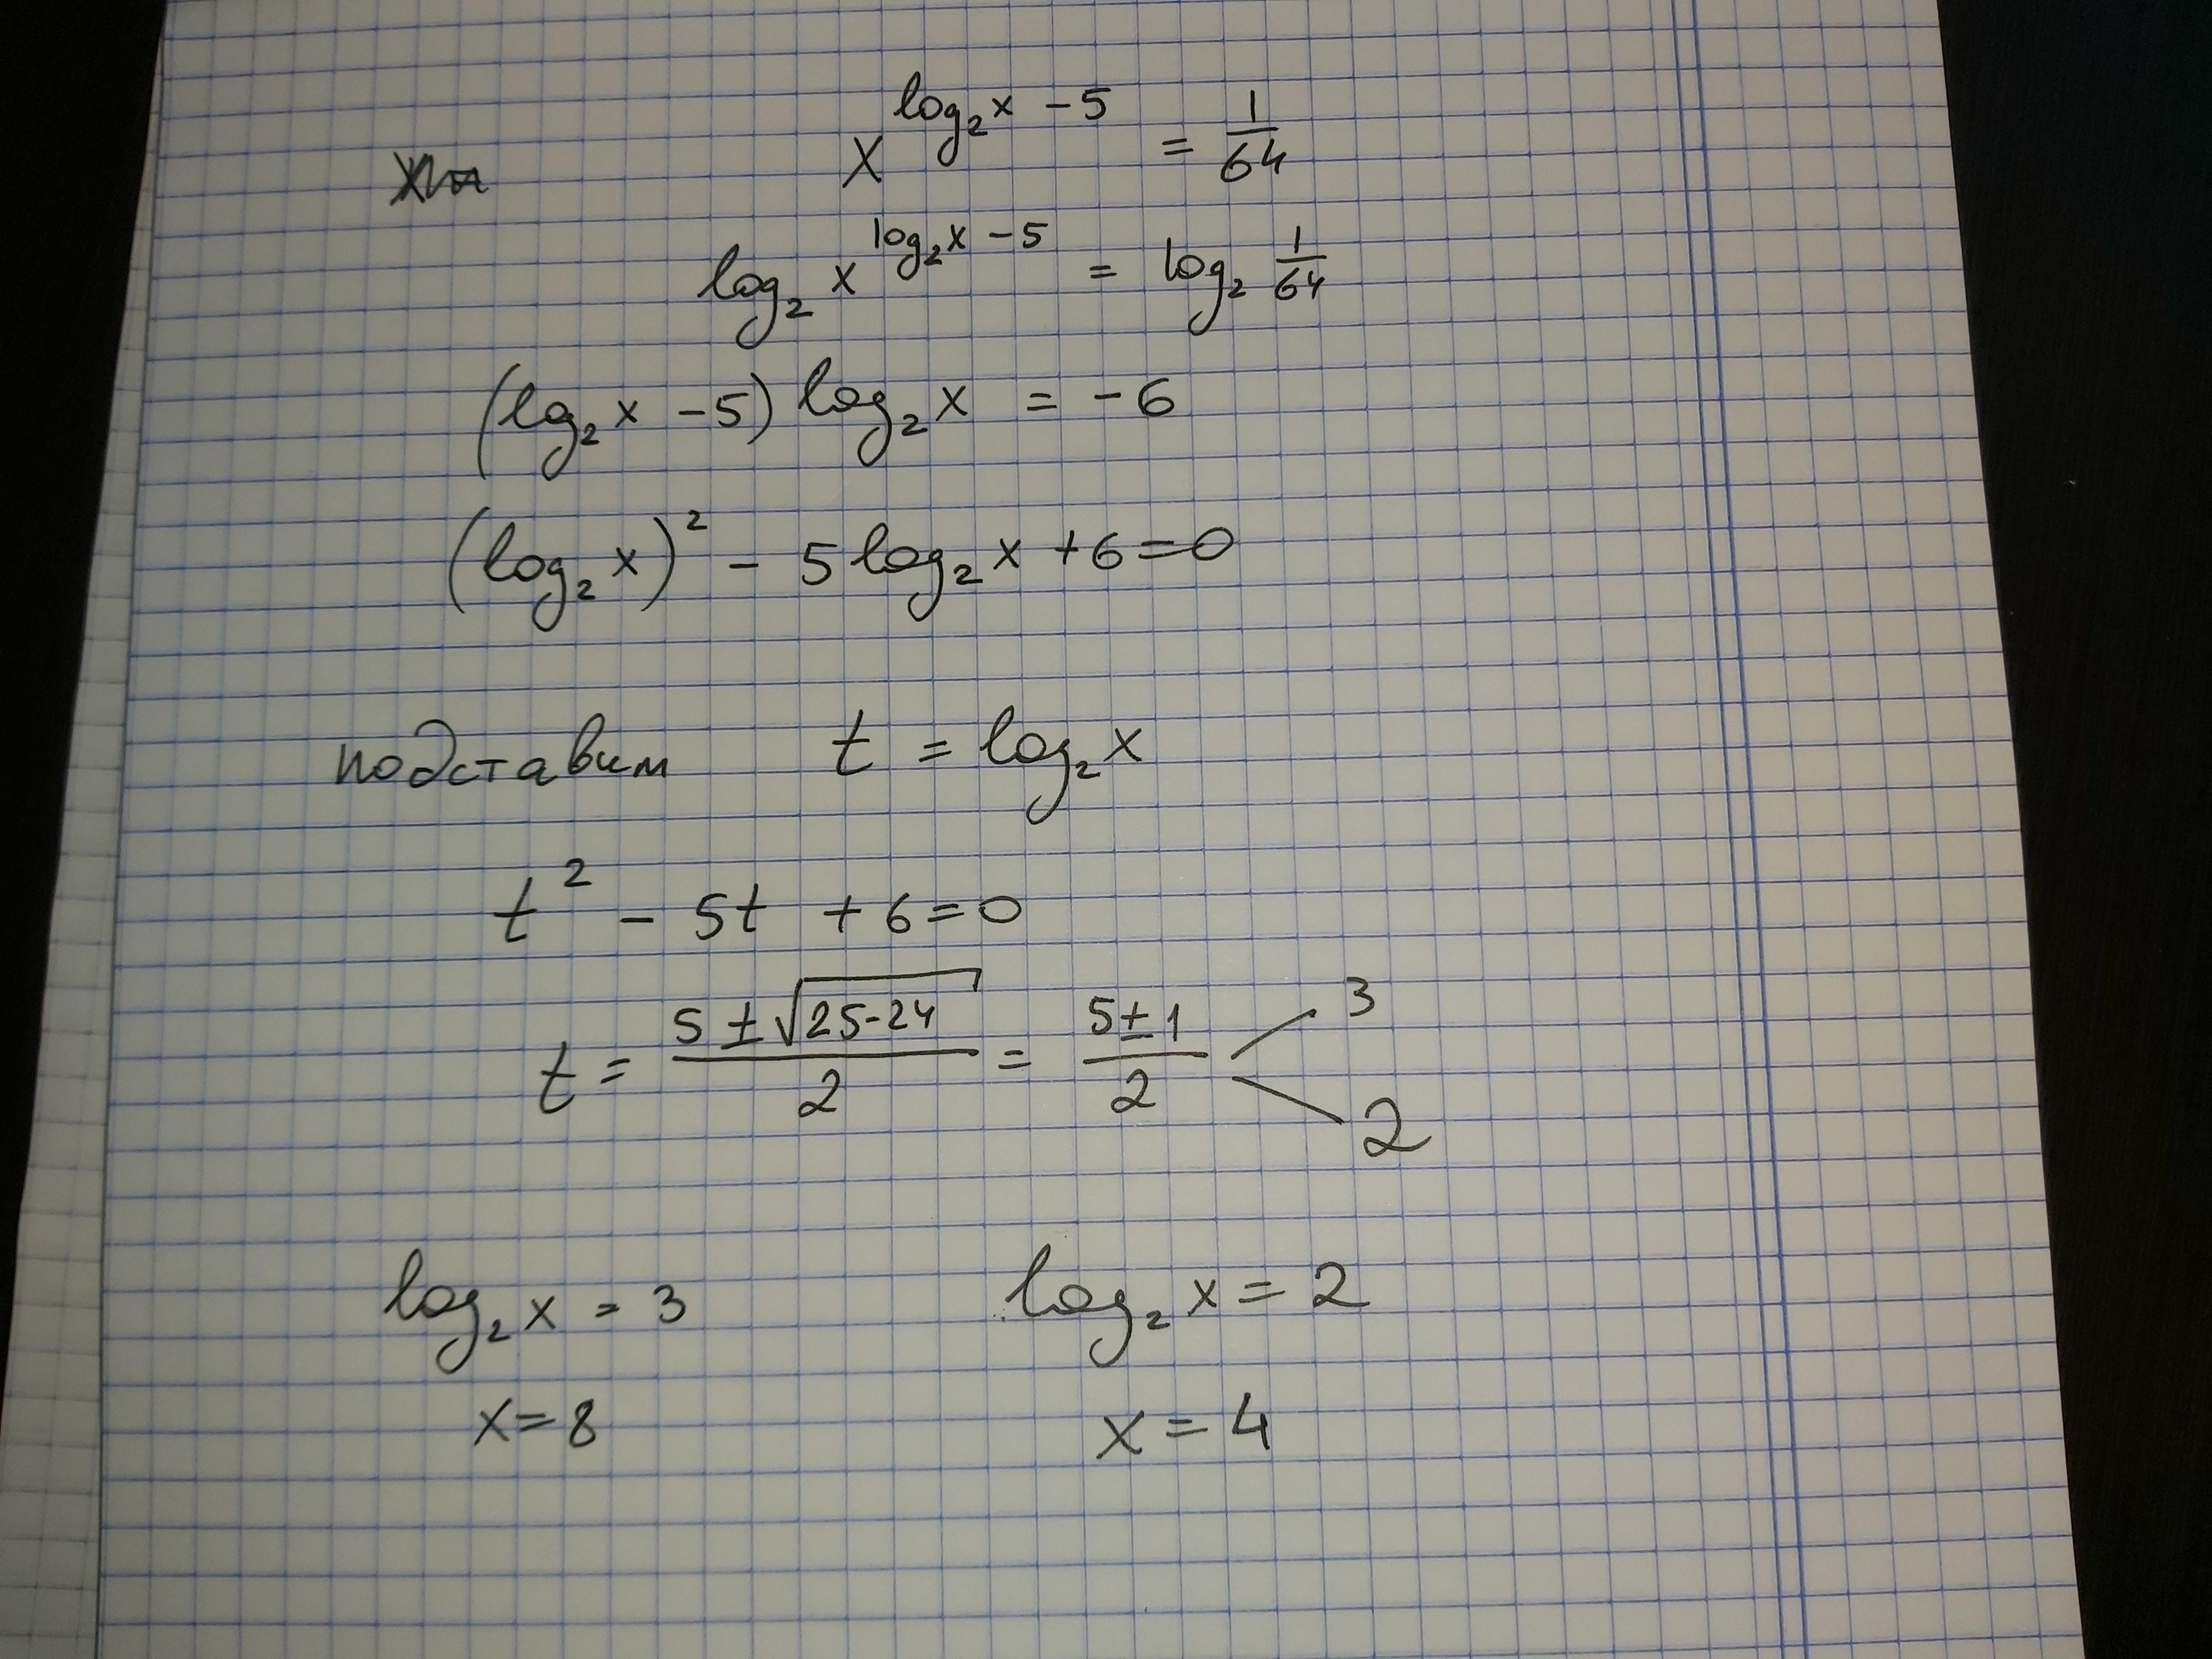 x^(log₂x - 5) = 1/64
log₂ x^(log₂x - 5) = log₂ 1/64
(log₂ x - 5) log₂ x = -6
(log₂ x)² - 5 log₂ x + 6 = 0
подставим t = log₂ x
t² - 5t + 6 = 0
t = (5 ± √(25-24))/2 = (5 ± 1)/2 3
2
log₂ x = 3 log₂ x = 2
x = 8 x = 4